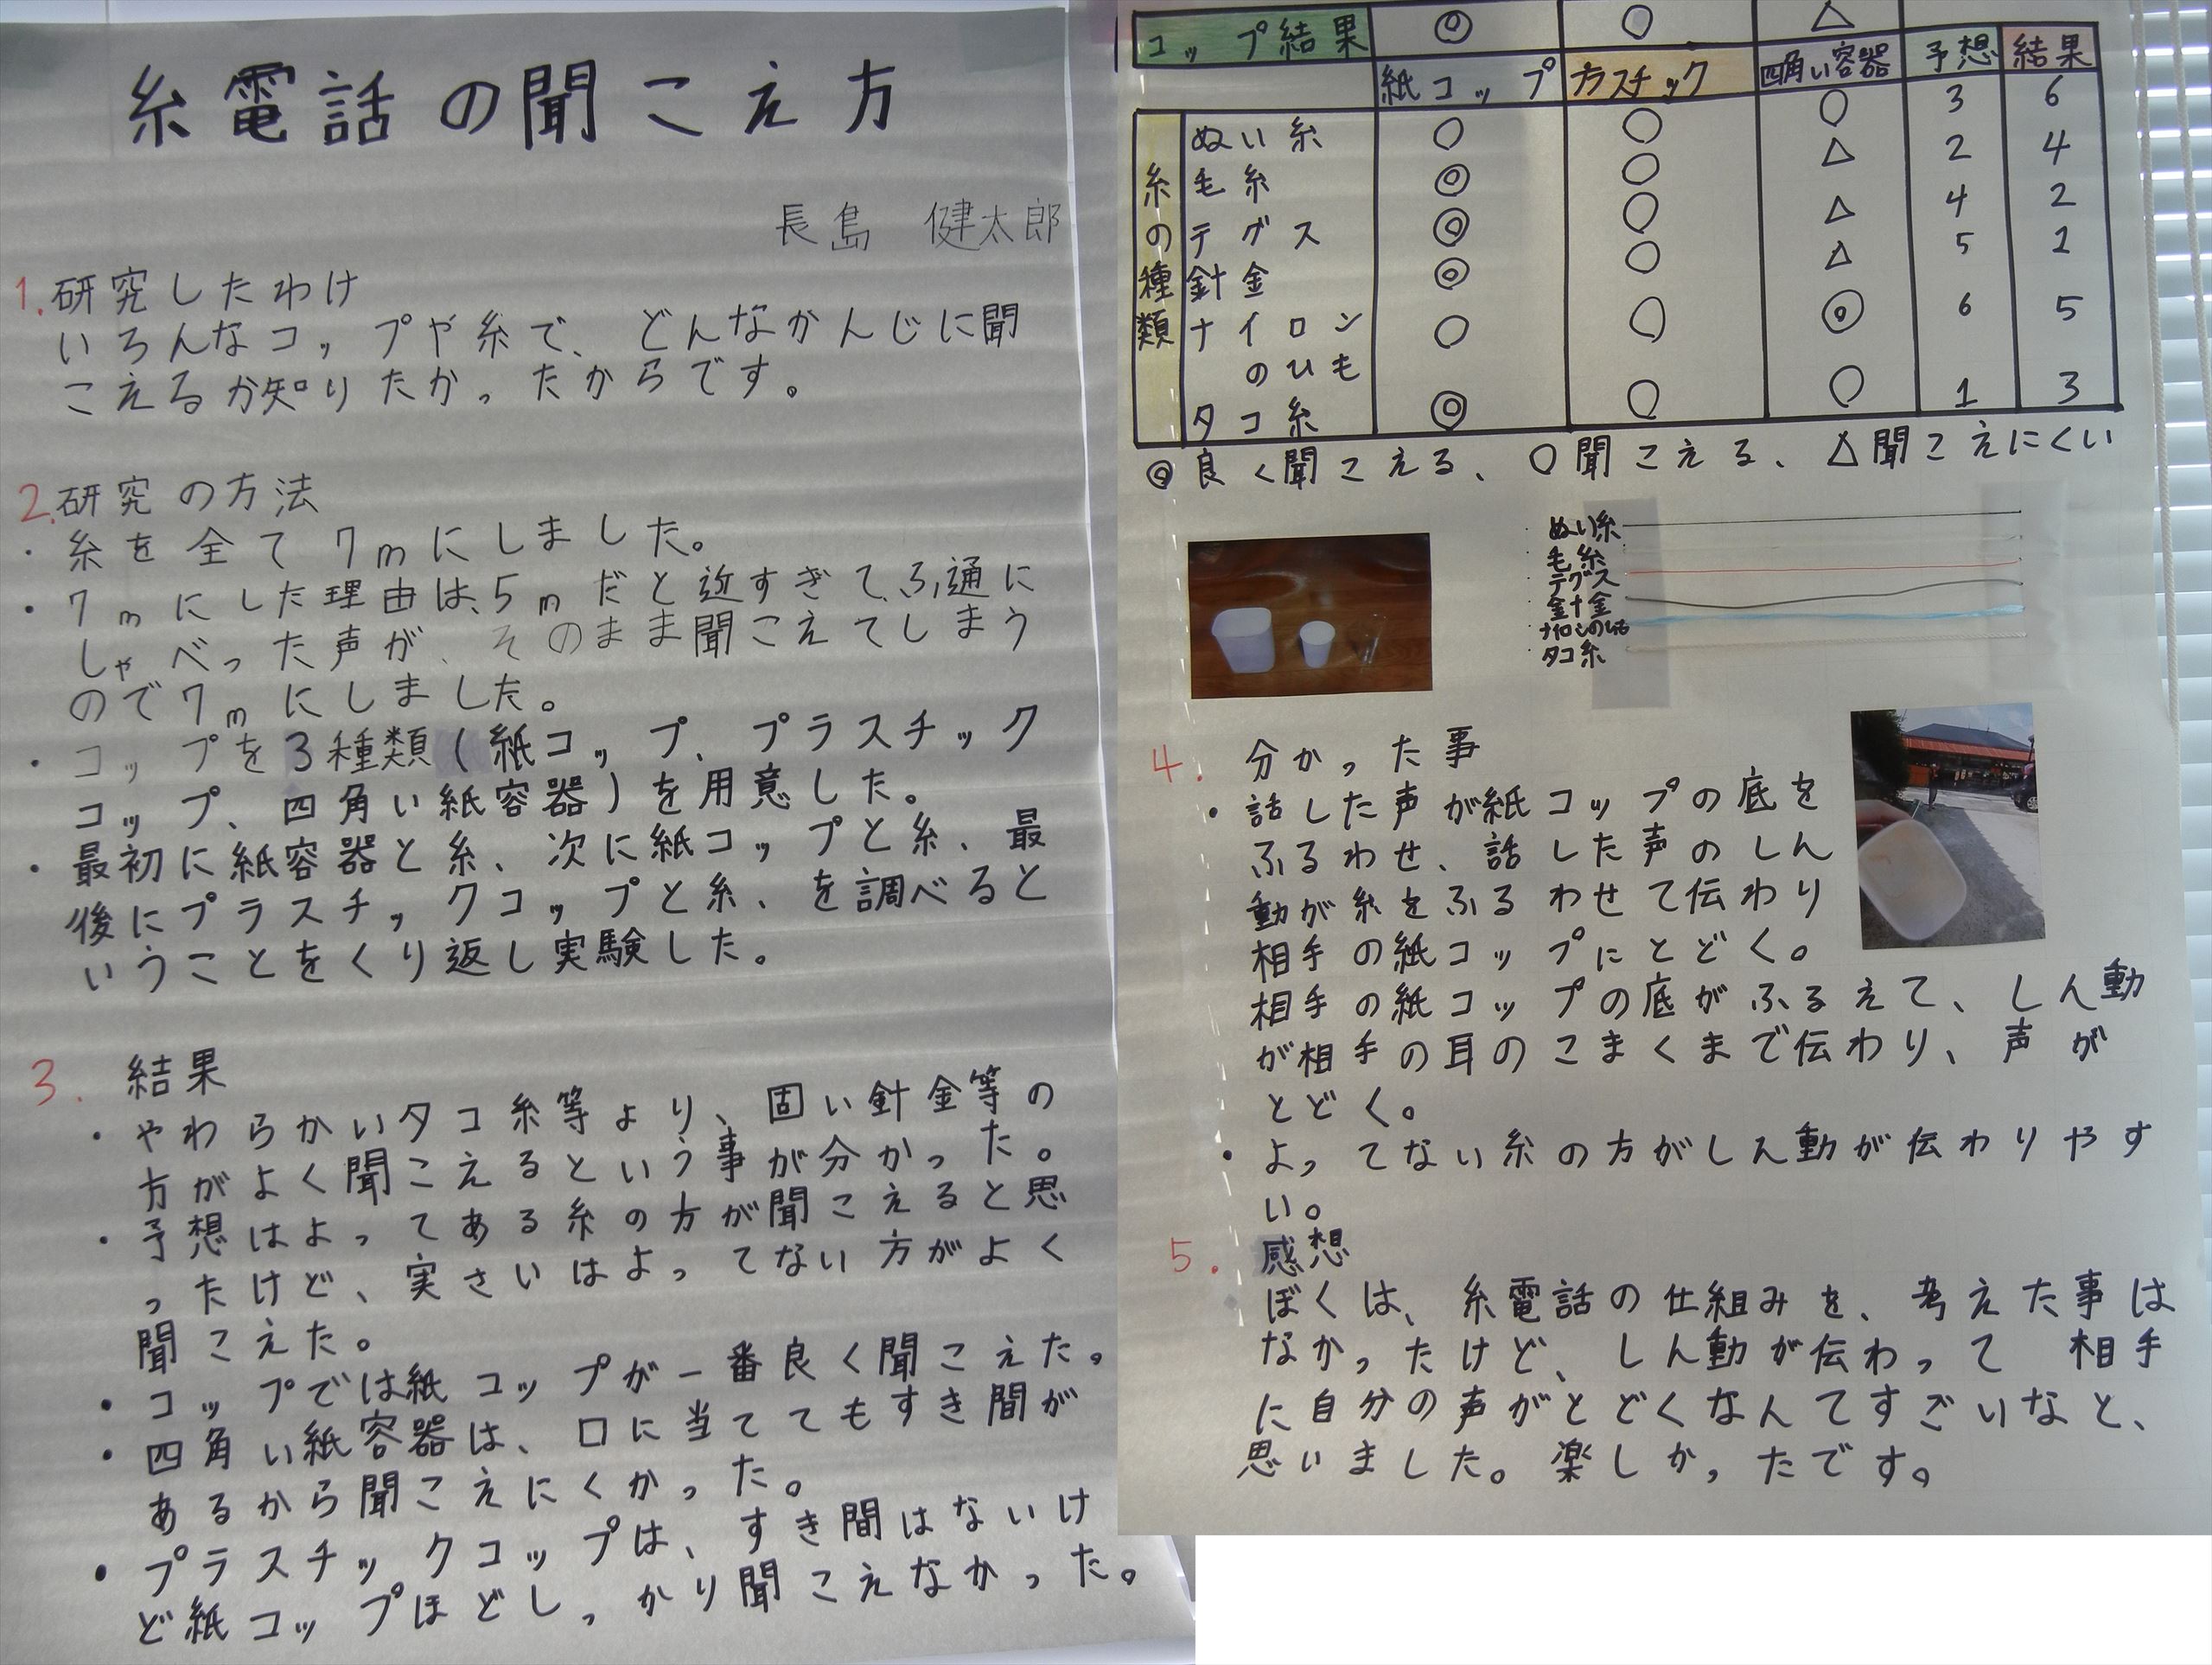 糸電話の聞こえ方
長島 健太郎
1. 研究したわけ
いろんなコップや糸で、どんなかんじに聞
こえるか知りたかったからです。
2. 研究の方法
・糸を全て7mにしました。
・7mにした理由は、5mだと近すぎて、ふ通に
しゃべった声が、そのまま聞こえてしまう
ので7mにしました。
・コップを3種類(紙コップ、プラスチック
コップ、四角い紙容器)を用意した。
・最初に紙容器と糸、次に紙コップと糸、最
後にプラスチックコップと糸、を調べると
いうことをくり返し実験した。
3. 結果
・やわらかいタコ糸等より、固い針金等の
方がよく聞こえるという事が分かった。
・予想はよってある糸の方が聞こえると思
ったけど、実さいはよってない方がよく
聞こえた。
・コップでは紙コップが一番良く聞こえた。
・四角い紙容器は、口に当ててもすき間が
あるから聞こえにくかった。
・プラスチックコップは、すき間はないけ
ど紙コップほどしっかり聞こえなかった。
コップ結果 ◎ ○ △
紙コップ プラスチック 四角い容器 予想 結果
糸の種類
ぬい糸 ○ ○ ○ 3 6
毛糸 ◎ ○ △ 2 4
テグス ◎ ○ △ 4 2
針金 ◎ ○ △ 5 1
ナイロン ○ ○ ◎ 6 5
のひも
タコ糸 ◎ ○ ○ 1 3
◎良く聞こえる、○聞こえる、△聞こえにくい
・ぬい糸
・毛糸
・テグス
・針金
・ナイロンのひも
・タコ糸
4. 分かった事
・話した声が紙コップの底を
ふるわせ、話した声のしん
動が糸をふるわせて伝わり
相手の紙コップにとどく。
相手の紙コップの底がふるえて、しん動
が相手の耳のこまくまで伝わり、声が
とどく。
・よってない糸の方がしん動が伝わりやす
い。
5. 感想
ぼくは、糸電話の仕組みを、考えた事は
なかったけど、しん動が伝わって 相手
に自分の声がとどくなんてすごいなと、
思いました。楽しかったです。